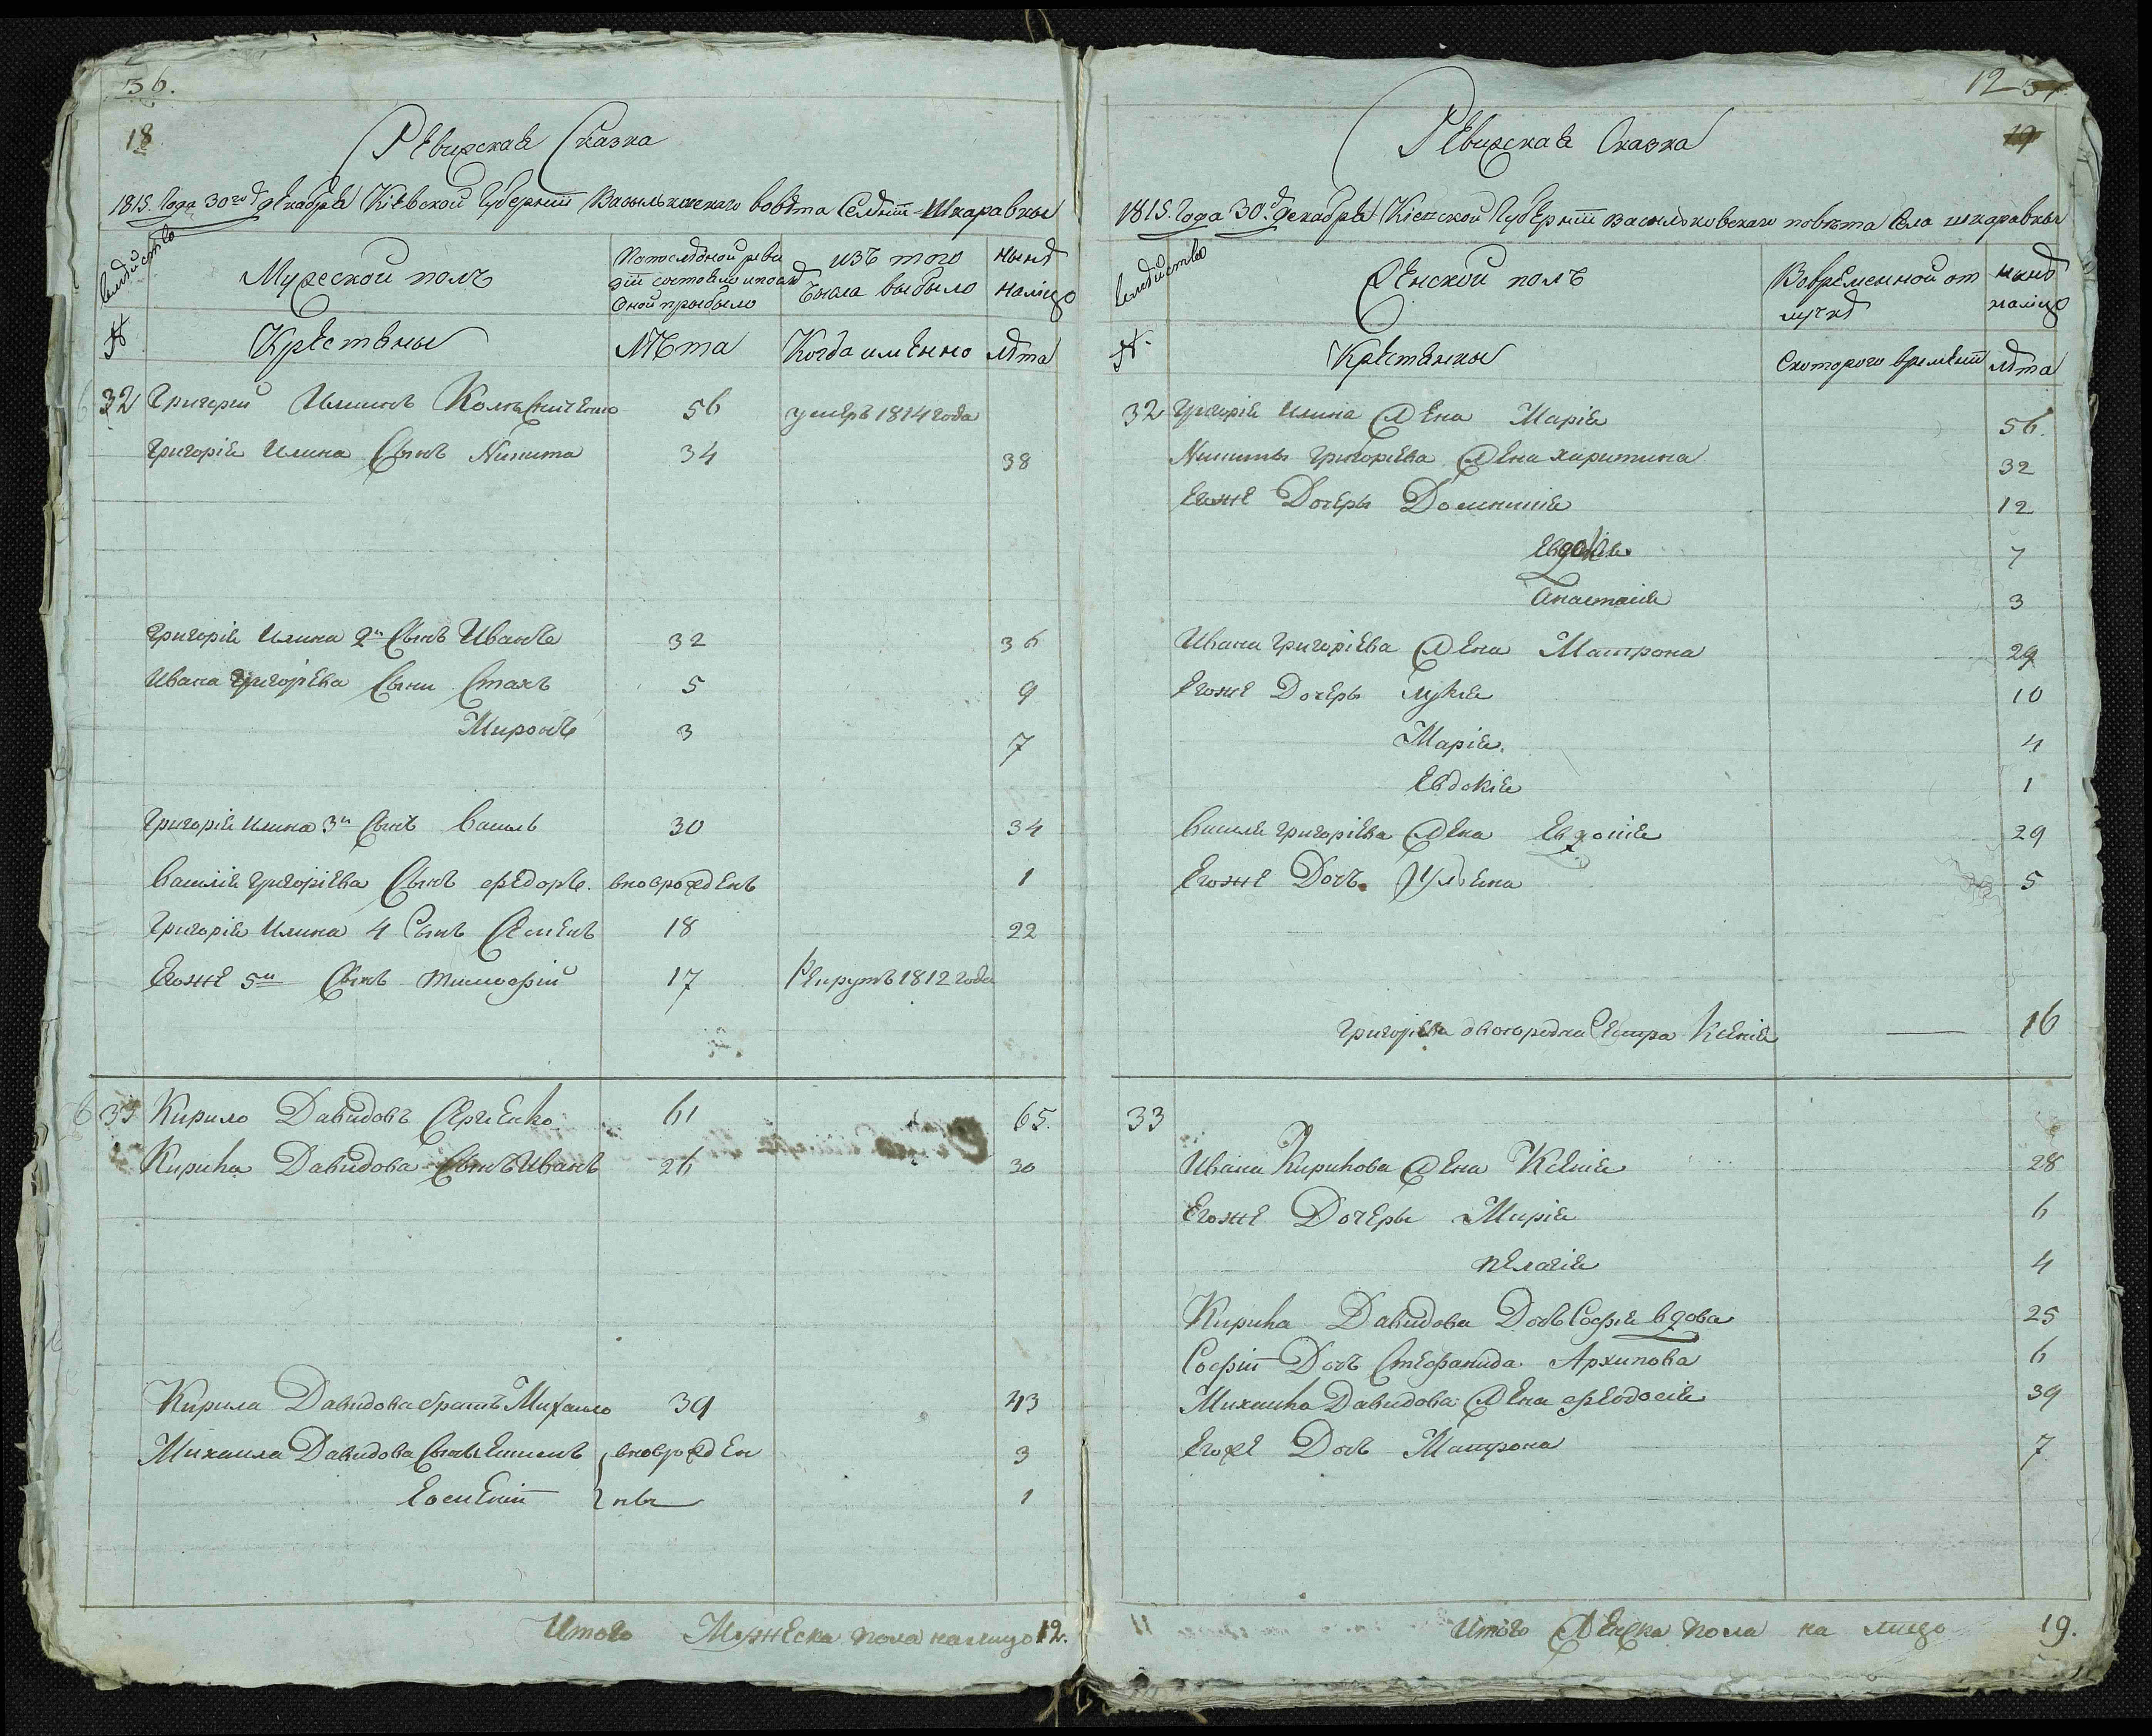 36.
18
Ревижская Сказка
1815. Года 30го декабря Киевской Губернии Васильковскаго Повѣта Селенія Шкаравки
Семейство
Мужеской полъ
Попоследной реви
зіи состояло ипослѣ
Оной прибыло
изъ того
Числа выбыло
нынѣ
налицо
№
Крестяны
Лѣта
Когда именно
лѣта
32 Григорий Илиинъ 56 умеръ 1814 года
Григорія Илина Сынъ Никита 34 38
Григорія Илина 2й Сынъ Иванъ 32 36
Ивана Григоріева Сыны Стахъ 5 9
Миронъ 3 7
Григорія Илина 3й Сынъ Василь 30 34
Василія Григоріева Сынъ Федоръ. вноврожденъ 1
Григорія Илина 4 Сынъ Семенъ 18 22
Егоже 5й Сынъ Тимофій 17 Рекрутъ 1812 года
33 Кирило Давидовъ 61 65.
Кирила Давидова Сынъ Иванъ 26 30
Кирила Давидова братъ Михаило 39 43
Михаила Давидова Сыны вноврожден 3
ны 1
Итого Мужеска пола налицо 12.
12
19
Ревижская Сказка
1815. Года 30. декабря Кіевской Губерніи Васильковскаго повѣта Села шкаравки
Семейство
Женской полъ
Вовременной от
лучкѣ
нынѣ
налицо
№.
Крестянки
Скоторого времени
лѣта
32 Григорія Илина Жена Марія 56.
Никиты Григорієва Жена харитина 32
Егоже Дочеры Доминикія 12
Евдокія 7
Анастасія 3
Ивана Григоріева Жена Матрона 29
Егоже Дочеры Лукія 10
Марія. 4
Евдокія 1
Василя Григоріева Жена Евдокія 29
Егоже Дочъ. Ульяна 5
Григорієва двоюродна Сестра Ксенія 16
33
Ивана Кирилова Жена Ксенія 28
Егоже Дочеры Марія 6
пелагія 4
Кирила Давидова Дочъ Софія вдова 25
Софіи Дочъ Стефанида Архипова 6
Михаила Давидова Жена Феодосія 39
Егоже Дочъ Матрона 7
Итого Женска пола на лицо 19.